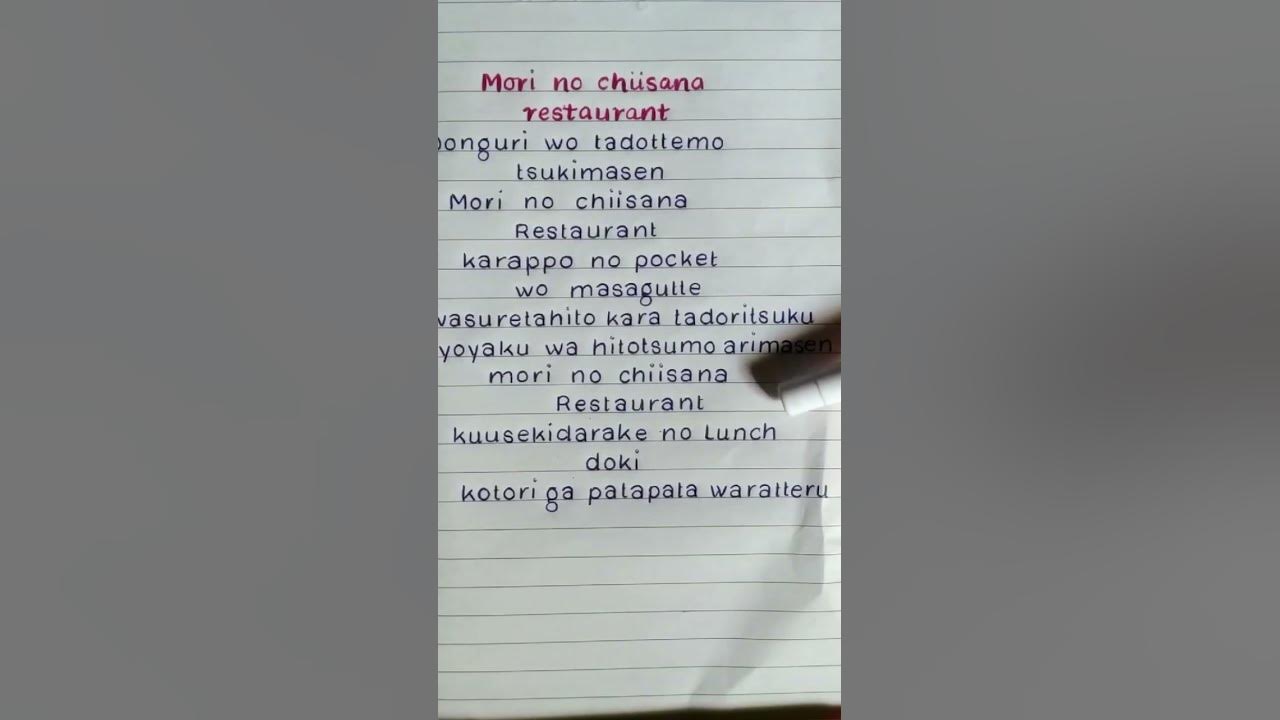 Mori no chiisana
restaurant
onguri wo tadottemo
tsukimasen
Mori no chiisana
Restaurant
karappo no pocket
wo masagutte
wasuretahito kara tadoritsuku
yoyaku wa hitotsumo arimasen
mori no chiisana
Restaurant
kuusekidarake no Lunch
doki
kotori ga patapata waratteru